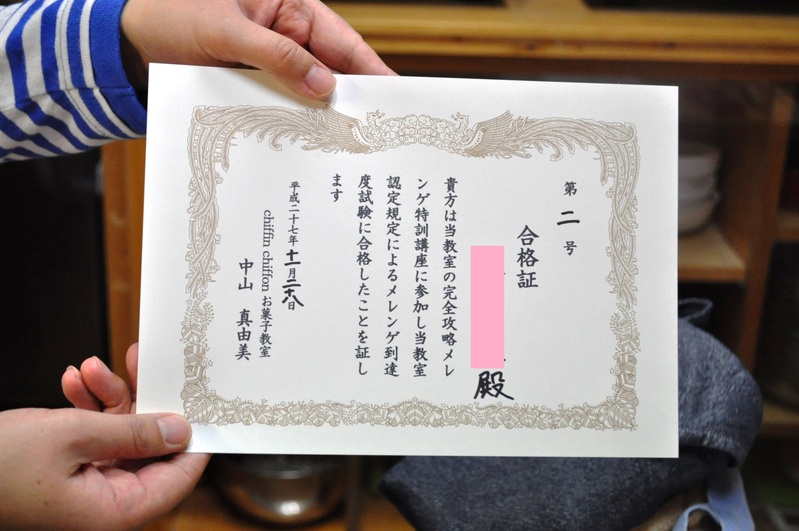 第二号
合格証
殿
貴方は当教室の完全攻略メレ
ンゲ特訓講座に参加し当教室
認定規定によるメレンゲ到達
度試験に合格したことを証し
ます
平成二十七年十一月二十八日
chiffin chiffon お菓子教室
中山 真由美